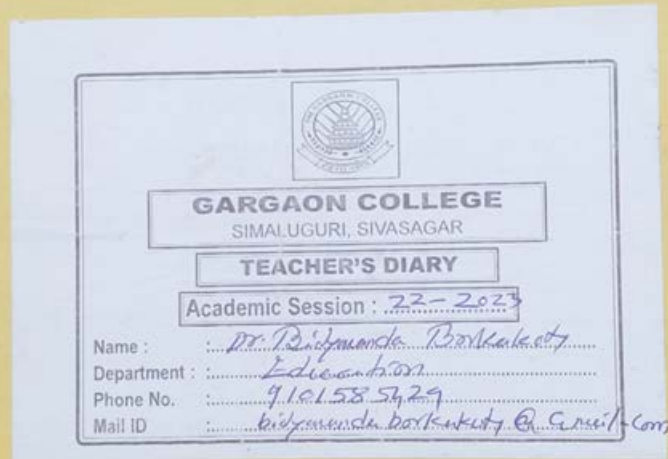 THE GARGAON COLLEGE
GARGAON COLLEGE
SIMALUGURI, SIVASAGAR
TEACHER'S DIARY
Academic Session : 22-2023
Name : Dr. Bidyananda Borkakoty
Department : Education
Phone No.
Mail ID bidyanandaborkakoty@gmail.com